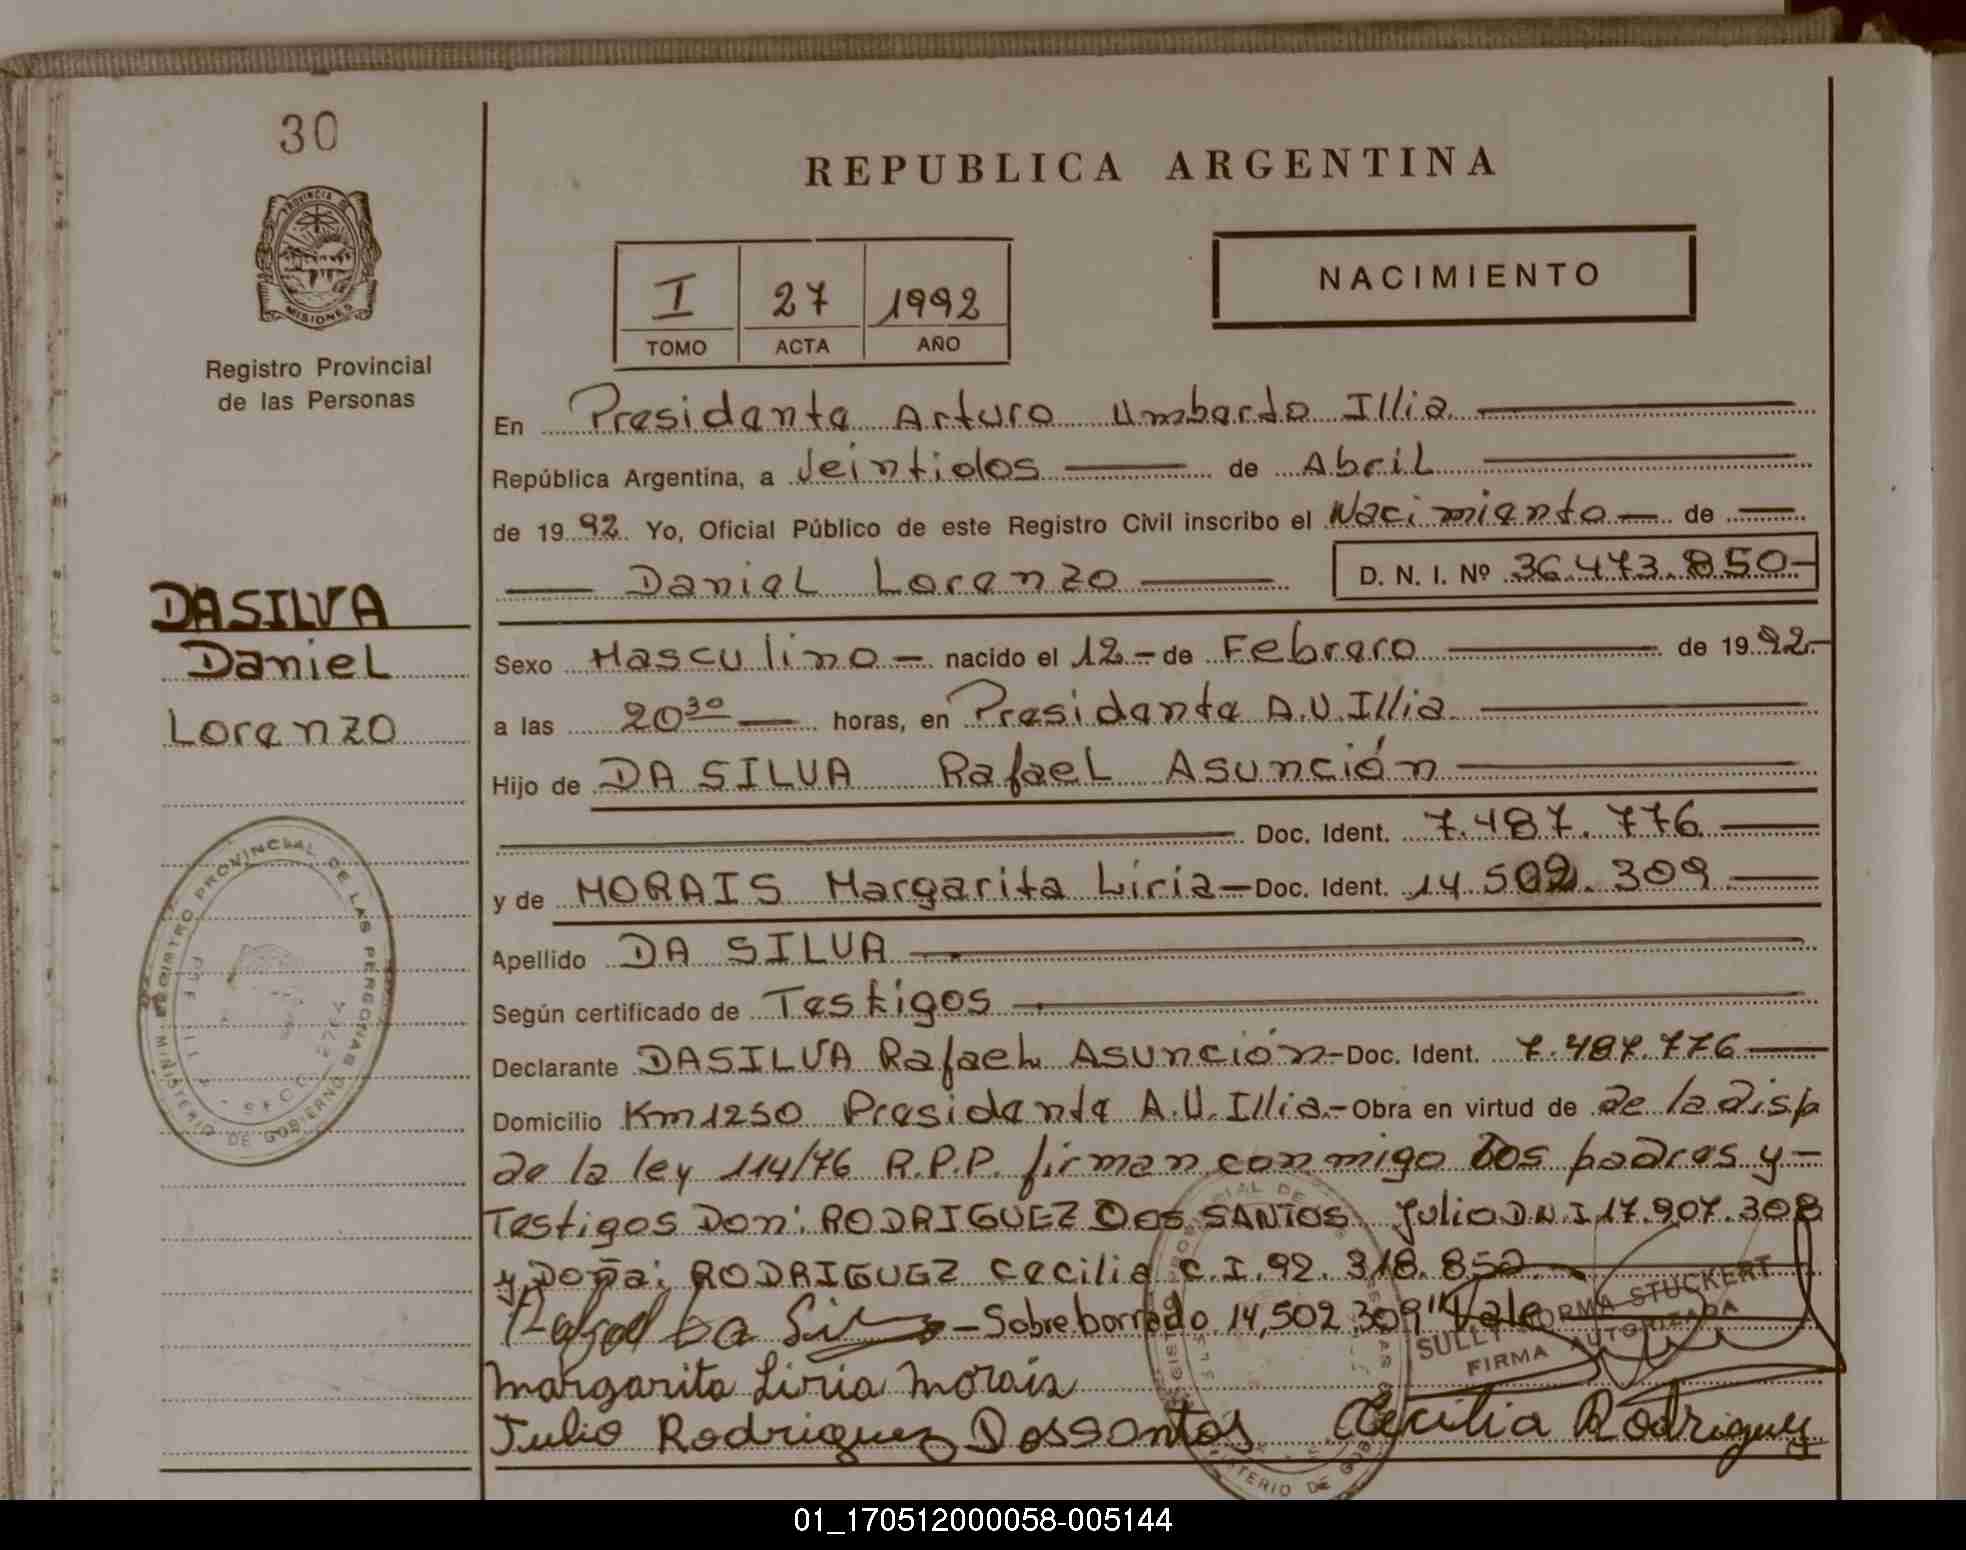 30
PROVINCIA DE
MISIONES
Registro Provincial
de las Personas
DASILVA
Daniel
Lorenzo
REGISTRO PROVINCIAL DE LAS PERSONAS
MINISTERIO DE GOBIERNO
REPUBLICA ARGENTINA
NACIMIENTO
I 27 1992
TOMO ACTA AÑO
En Presidente Arturo Umberto Illia
República Argentina, a Veintidos de Abril
de 1992 Yo, Oficial Público de este Registro Civil inscribo el Nacimiento de
Daniel Lorenzo D. N. I. Nº 36.473.850
Sexo Masculino nacido el 12 de Febrero de 1992
a las 20³⁰ horas, en Presidente A.U. Illia
Hijo de DA SILVA Rafael Asunción
Doc. Ident. 7.487.776
y de MORAIS Margarita Liria Doc. Ident. 14.502.309
Apellido DA SILVA
Según certificado de Testigos
Declarante DASILVA Rafael Asunción Doc. Ident. 7.487.776
Domicilio Km 1250 Presidente A.U. Illia Obra en virtud de de la disp
de la ley 114/76 R.P.P. firman conmigo Los padres y
Testigos Don: RODRIGUEZ DOS SANTOS Julio D.N.I 17.907.308
y Doña: RODRIGUEZ Cecilia C.I. 92.318.852
Rafael Da Silva Sobreborrado 14,502.309" Vale
SULLY NORMA STUCKERT
FIRMA AUTORIZADA
Margarita Liria Morais
Julio Rodriguez Dossantos Cecilia Rodriguez
01_170512000058-005144